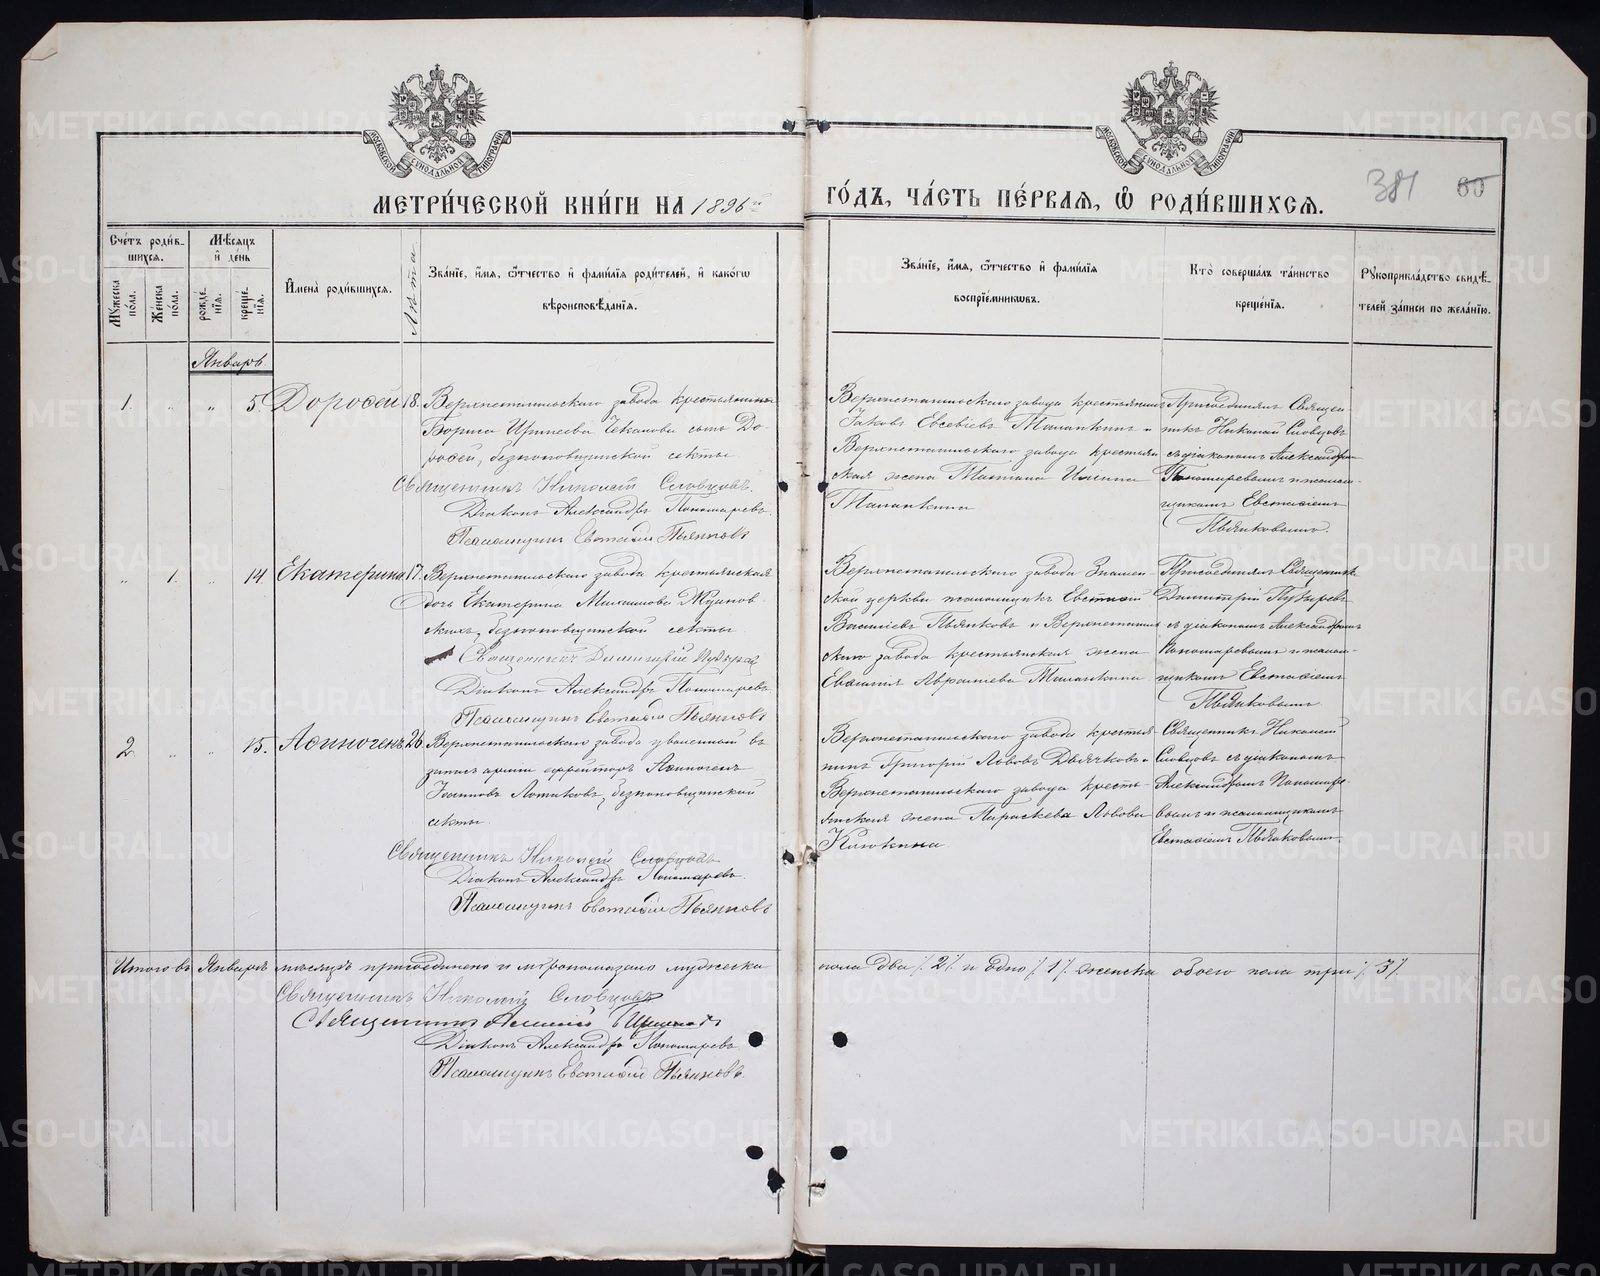 МЕТРИ́ЧЕСКОЙ КНИ́ГИ НА 1896й
ГО́ДЪ, ЧА́СТЬ ПЕ́РВАѦ, Ѡ РОДИ́ВШИХСѦ.
381 60
Сче́тъ роди́в-
шихсѧ.
Мꙋжеска
по́ла.
Же́нска
по́ла.
Мѣ́сѧцъ
и де́нь
рожде́-
нїѧ.
креще́-
нїѧ.
Имена̀ роди́вшихсѧ.
Лѣта
Зва́нїе, и́мѧ, ѻ҆́тчество и фами́лїѧ роди́телей, и како́гѡ
вѣроисповѣ́данїѧ.
Зва́нїе, и́мѧ, ѻ҆́тчество и фами́лїѧ
воспрїе́мникѡвъ.
Кто̀ соверша́лъ та́инство
креще́нїѧ.
Рꙋкоприкла́дство свидѣ́-
телей за́писи по жела́нїю.
Январь
1. " " 5. Дорофей 18. Верхнетагильскаго завода крестьянина
Бориса Иринеева Чеканова сынъ До-
рофей, безпоповщинской секты
Священникъ Николай Словцовъ.
Діаконъ Александръ Пономаревъ.
Псаломщикъ Евстафій Пьянковъ
Верхнетагильскаго завода крестьянинъ
Іаковъ Евсевіевъ Таланкинъ и
Верхнетагильскаго завода крестьян-
ская жена Татіана
Таланкина
Присоединялъ Священ-
никъ Николай Словцовъ
съ діакономъ Александромъ
Пономаревымъ и псалом-
щикомъ Евстафіемъ
Пьянковымъ.
" 1. " 14 Екатерина 17. Верхнетагильскаго завода крестьянская
дочь Екатерина Михаилова Ждановскихъ
, безпоповщинской секты
Священникъ Димитрій
Діаконъ Александръ Пономаревъ
Псаломщикъ Евстафій Пьянковъ
Верхнетагильскаго завода Знамен-
ской церкви псаломщикъ Евстафій
Васильевъ Пьянковъ и Верхнетагиль-
скаго завода крестьянская жена
Таланкина
Присоединялъ Священникъ
Димитрій
съ діакономъ Александромъ
Пономаревымъ и псалом-
щикомъ Евстафіемъ
Пьянковымъ.
2. " " 15. Афиногенъ 26. Верхнетагильскаго завода уволенный въ
запасъ арміи ефрейторъ Афиногенъ
Іоанновъ безпоповщинской
секты
Священникъ Николай Словцовъ
Діаконъ Александръ Пономаревъ.
Псаломщикъ Евстафій Пьянковъ
Верхнетагильскаго завода крестья-
нинъ Григорій Львовъ Дьячковъ и
Верхнетагильскаго завода кресть-
янская жена Параскева Львова
Клюкина.
Священникъ Николай
Словцовъ съ діакономъ
Александромъ Пономаре-
вымъ и псаломщикомъ
Евстафіемъ Пьянковымъ
Итого въ Январѣ мѣсяцѣ присоединено и мѵропомазано мужеска
пола два /.2/. и одно /.1/. женска обоего пола три /.3/.
Священникъ Николай Словцовъ
Священникъ
Діаконъ Александръ Пономаревъ
Псаломщикъ Евстафій Пьянковъ.